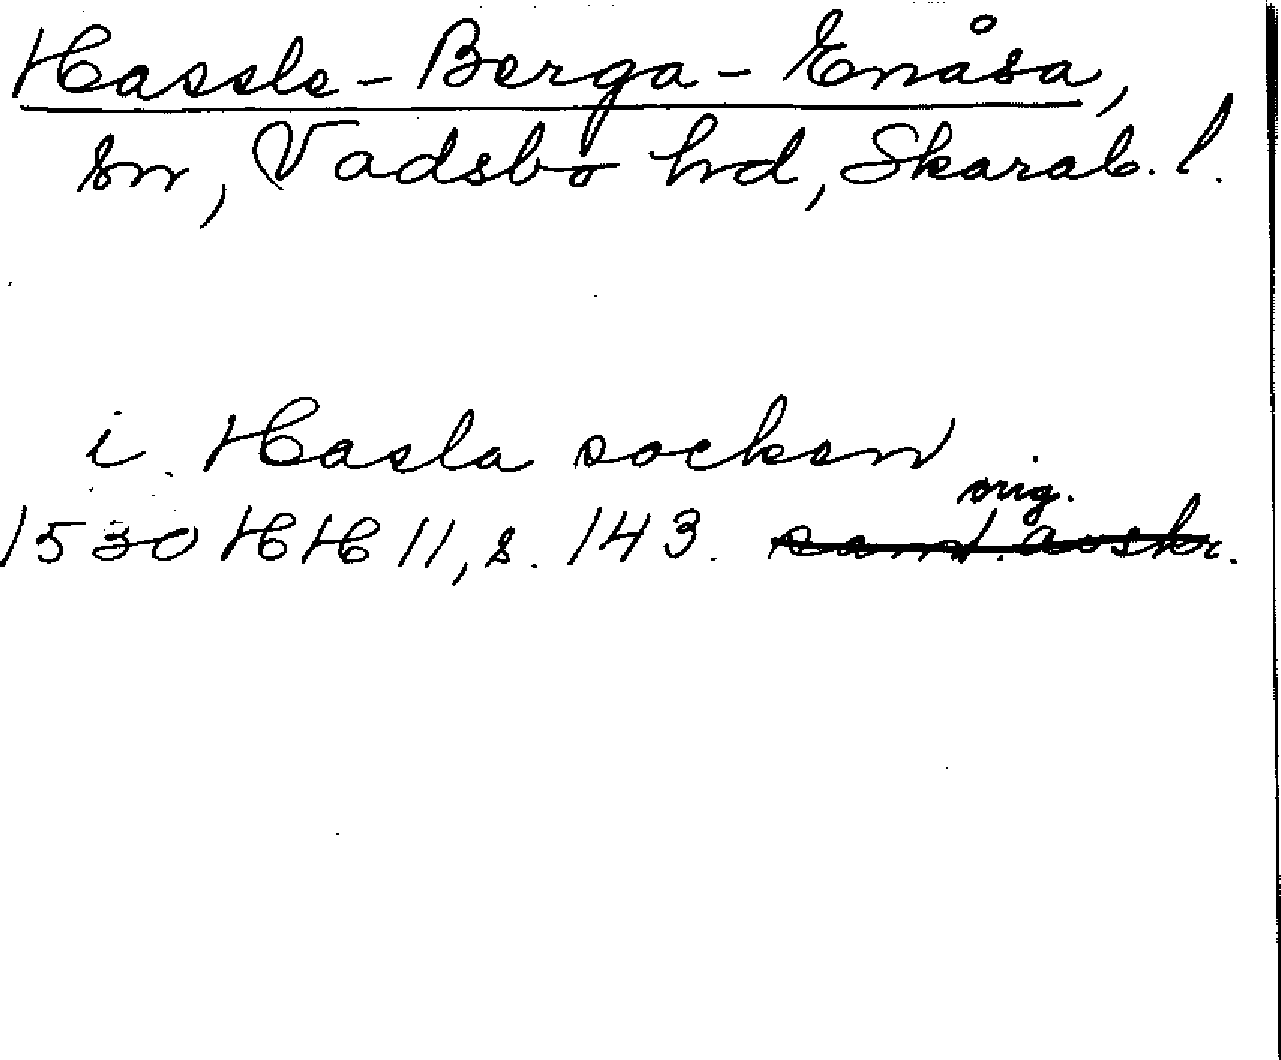 Hassle-Berga-Enåsa,
sn, Vadsbo hd, Skarab. l.
i Hasla socken
orig.
1530 HH 11, s. 143. samt. avskr.